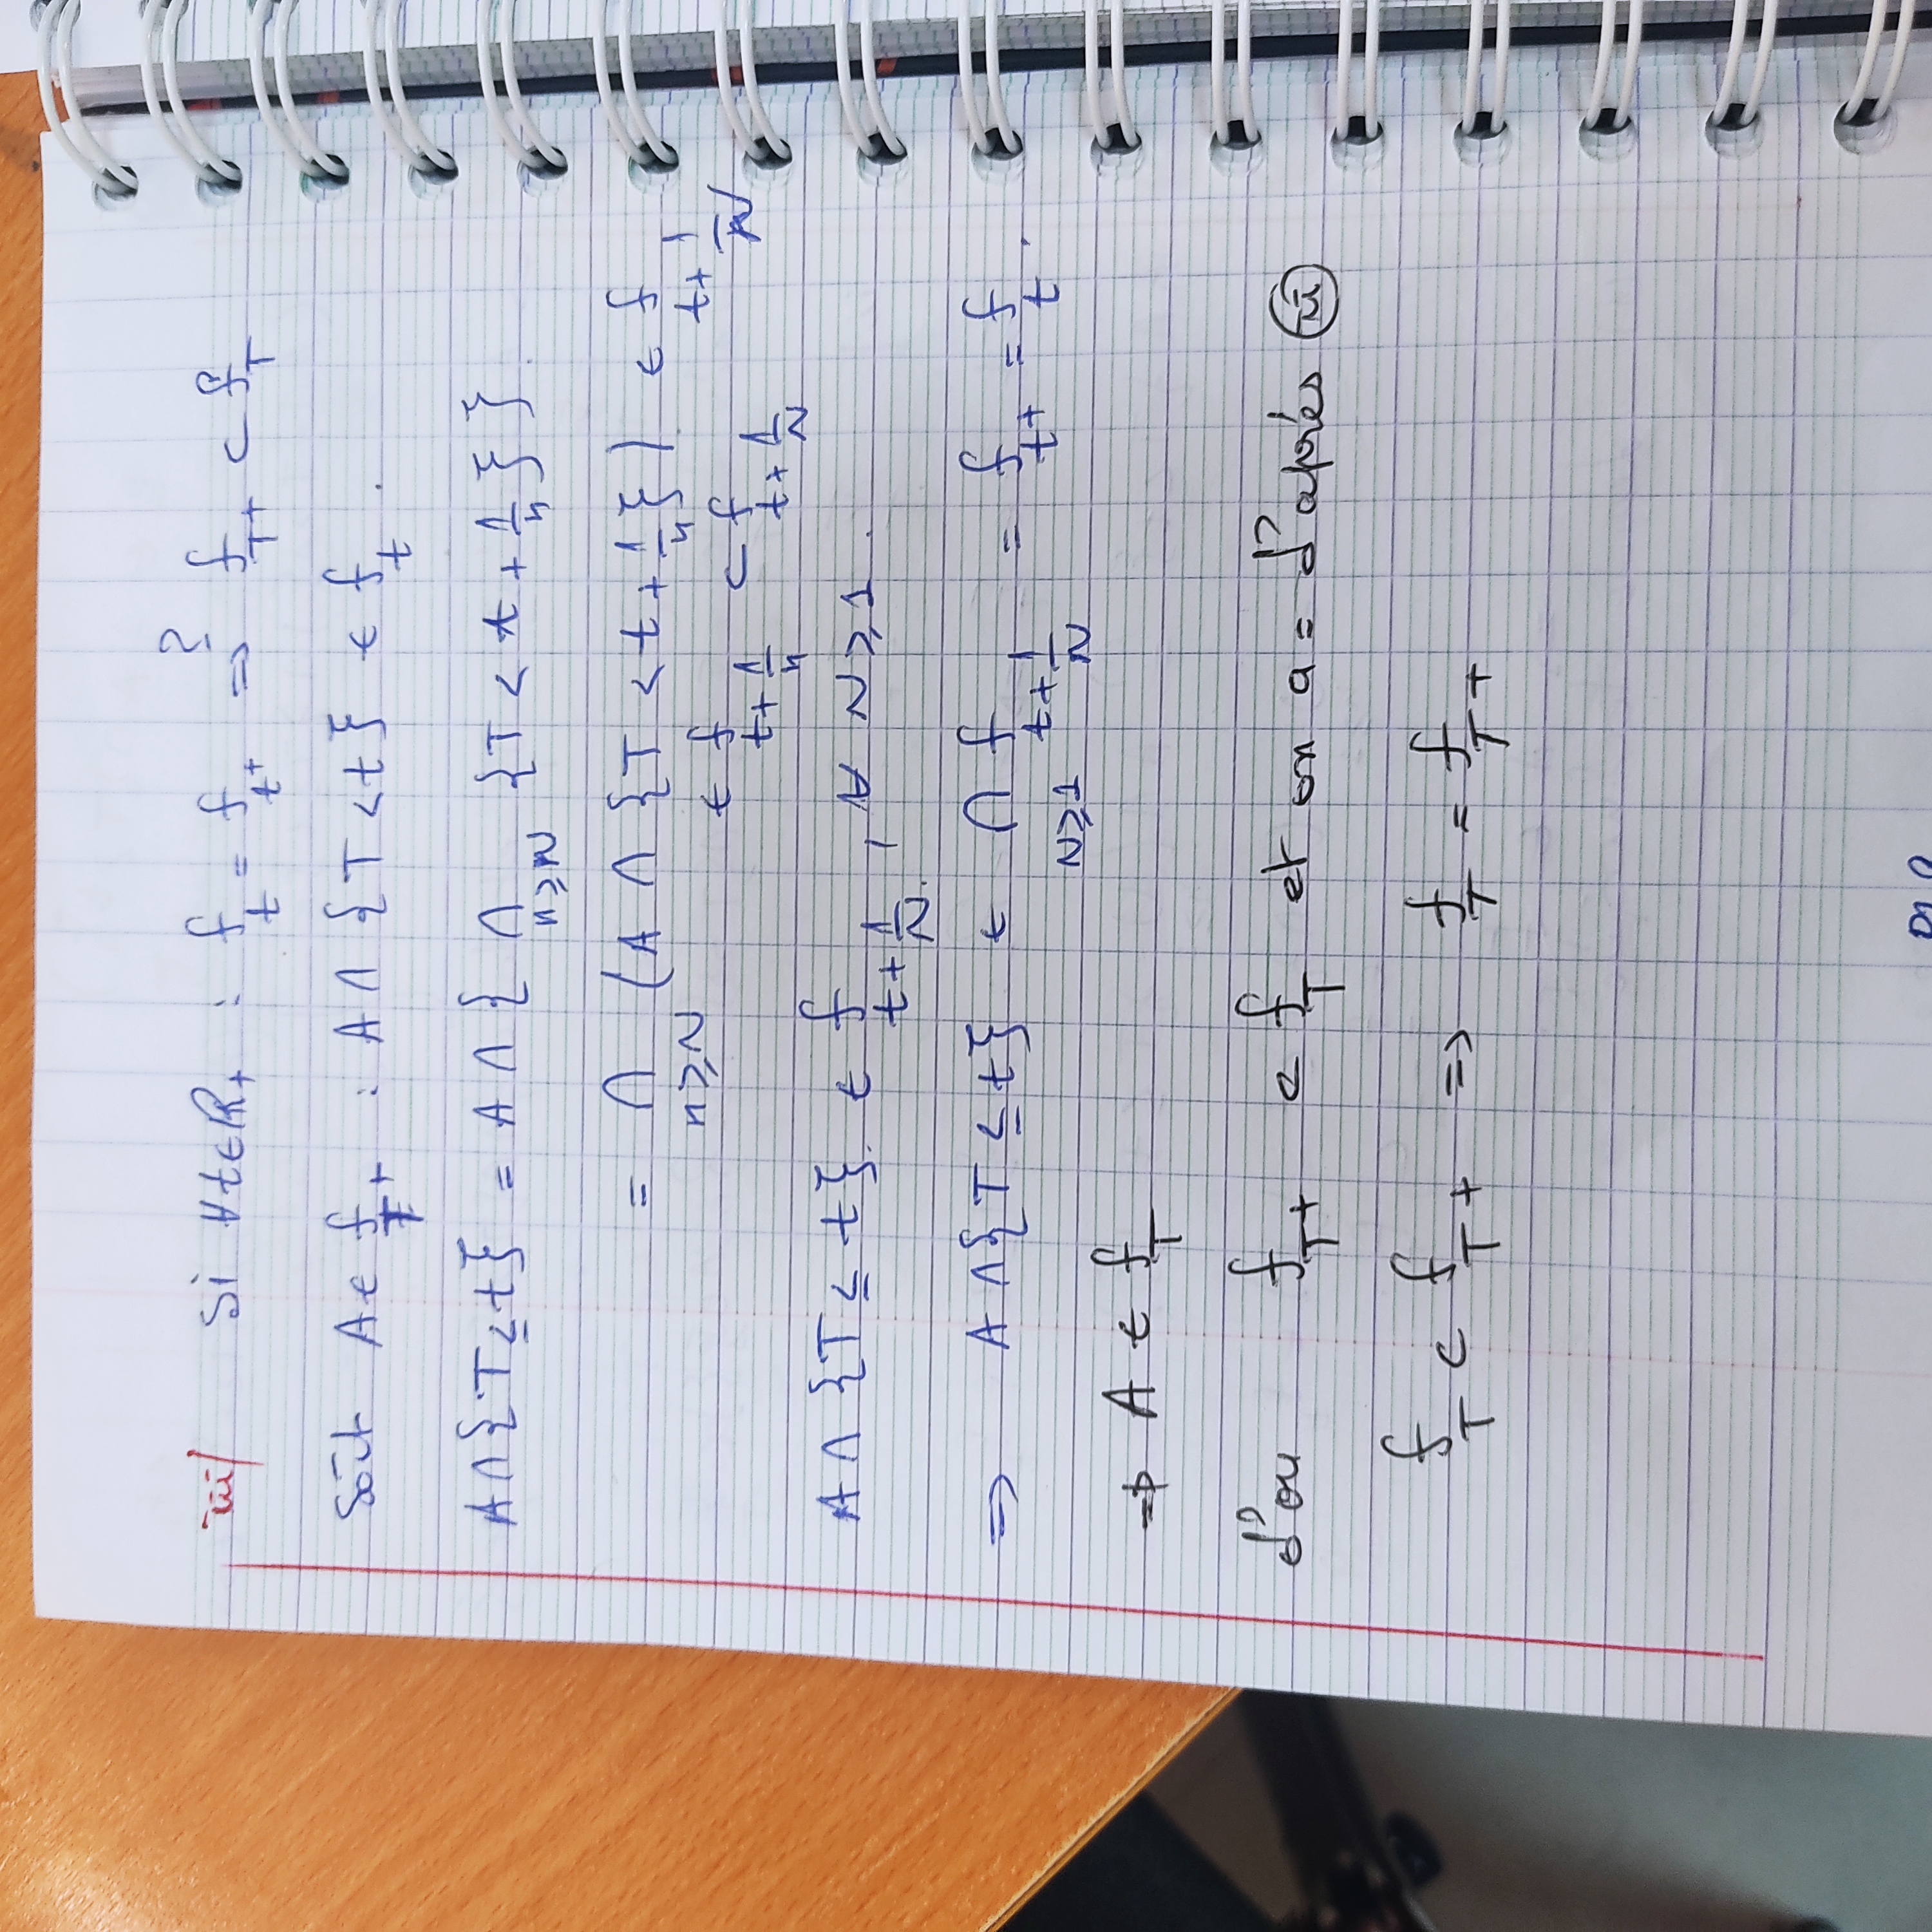 iii/ Si ∀t∈ℝ₊ : f_t = f_{t⁺} ⇒? f_{T⁺} ⊂ f_T
Soit A ∈ f_{T⁺} : A ∩ {T < t} ∈ f_t .
A∩{T ≤ t} = A ∩ { ∩_{n≥N} {T < t + 1/n} }.
= ∩_{n≥N} (A ∩ {T < t + 1/n}) ∈ f_{t+1/N}
∈ f_{t+1/n} ⊂ f_{t+1/N}
A ∩ {T ≤ t} ∈ f_{t+1/N} , ∀ N ≥ 1 .
⇒ A ∩ {T ≤ t} ∈ ∩_{N≥1} f_{t+1/N} = f_{t⁺} = f_t .
⇒ A ∈ f_T
d'ou f_{T⁺} ⊂ f_T et on a = d'aprés (ii)
f_T ⊂ f_{T⁺} ⇒ f_T = f_{T⁺}